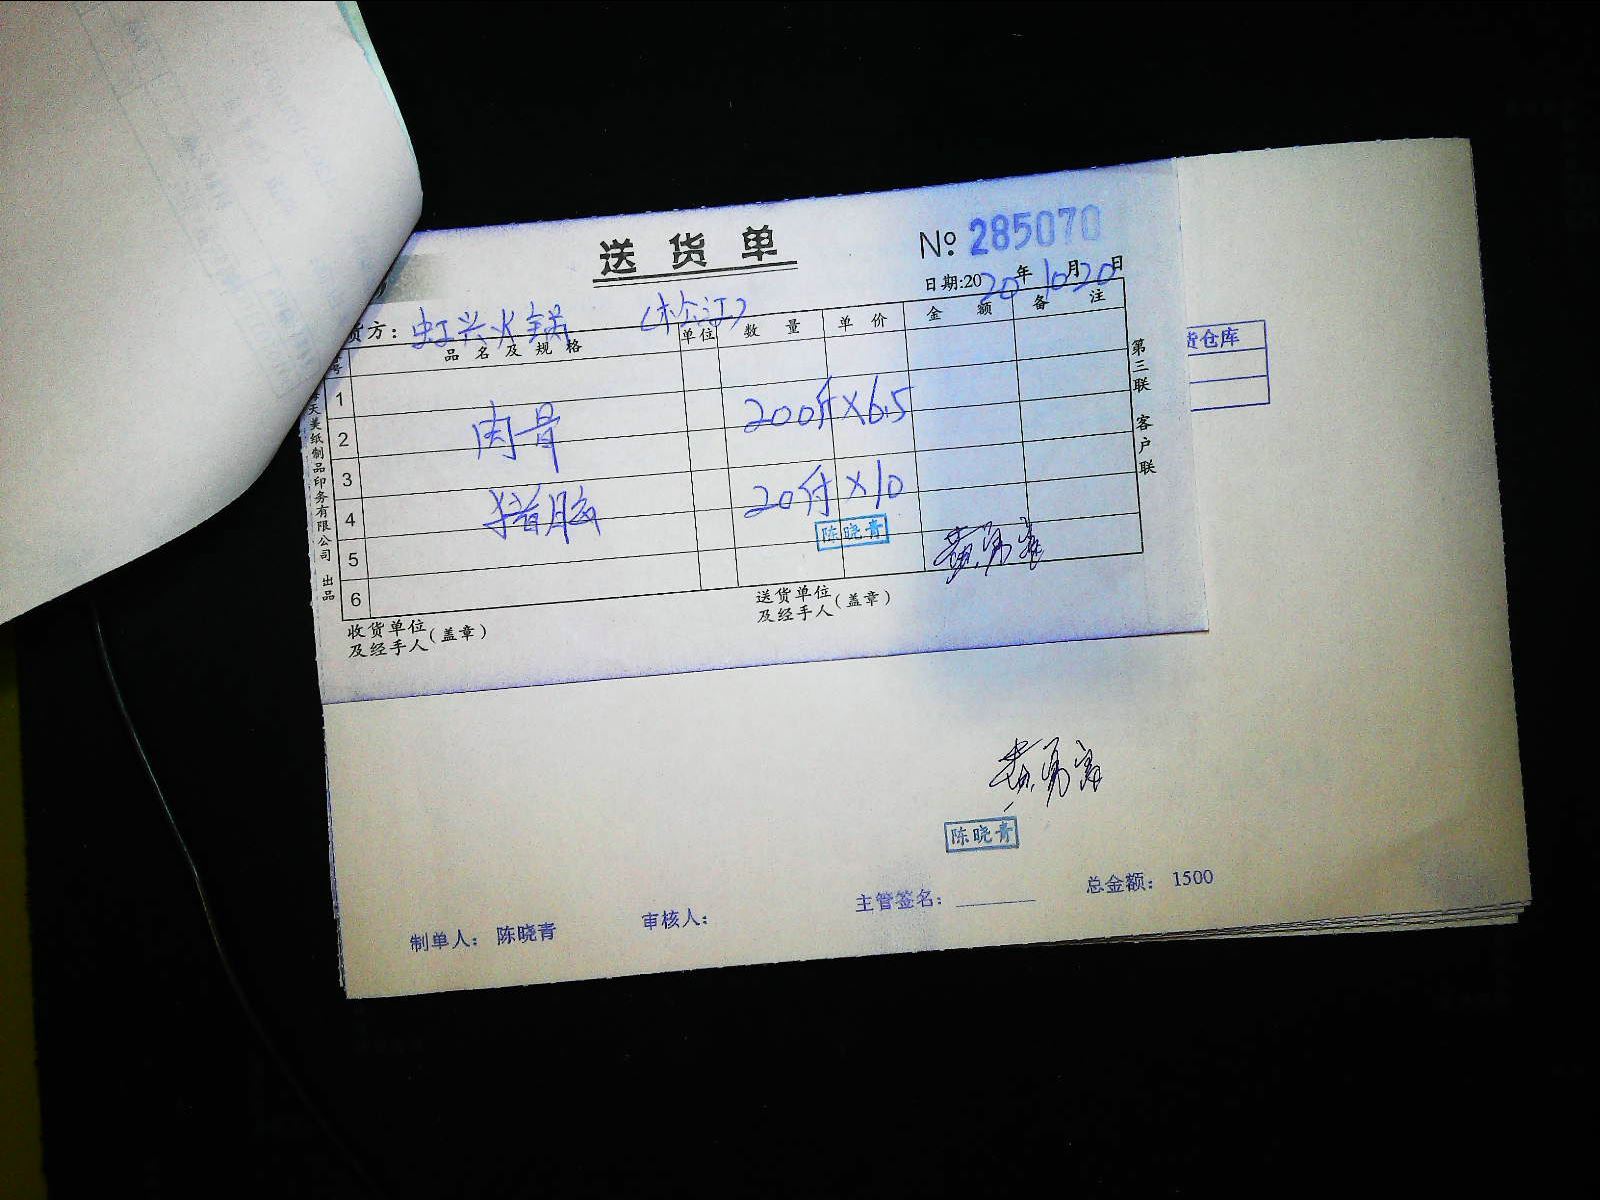 送货单
No 285070
日期:2020年10月20日
货方: 虹兴火锅 (松江)
号 品名及规格 单位 数量 单价 金额 备注
1
2 肉骨 200斤×6.5
3
4 猪脑 20付×10
陈晓青
5
6
收货单位及经手人(盖章)
送货单位及经手人(盖章)
天美纸制品印务有限公司 出品
第三联 客户联
货仓库
陈晓青
制单人: 陈晓青 审核人: 主管签名: 总金额: 1500